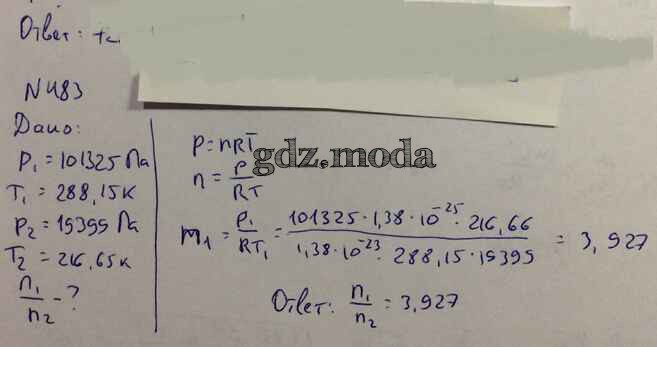 Ответ:
N483
Дано:
P₁ = 101325 Па
T₁ = 288,15 К
P₂ = 19399 Па
T₂ = 216,65 К
n₁/n₂ - ?
P = nRT
gdz.moda
n = P/RT
m₁ = P₁/RT₁ = 101325 · 1,38 · 10⁻²⁵ · 216,66 / 1,38 · 10⁻²³ · 288,15 · 19399 = 3,927
Ответ: n₁/n₂ = 3,927